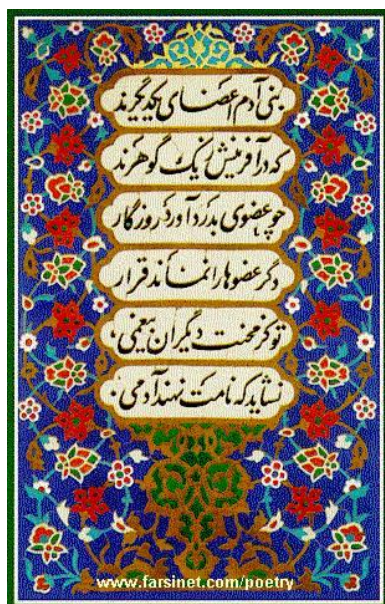 بنی آدم اعضای یکدیگرند
که در آفرینش ز یک گوهرند
چو عضوی بدرد آورد روزگار
دگر عضوها را نماند قرار
تو کز محنت دگران بیغمی
نشاید که نامت نهند آدمی
www.farsinet.com/poetry